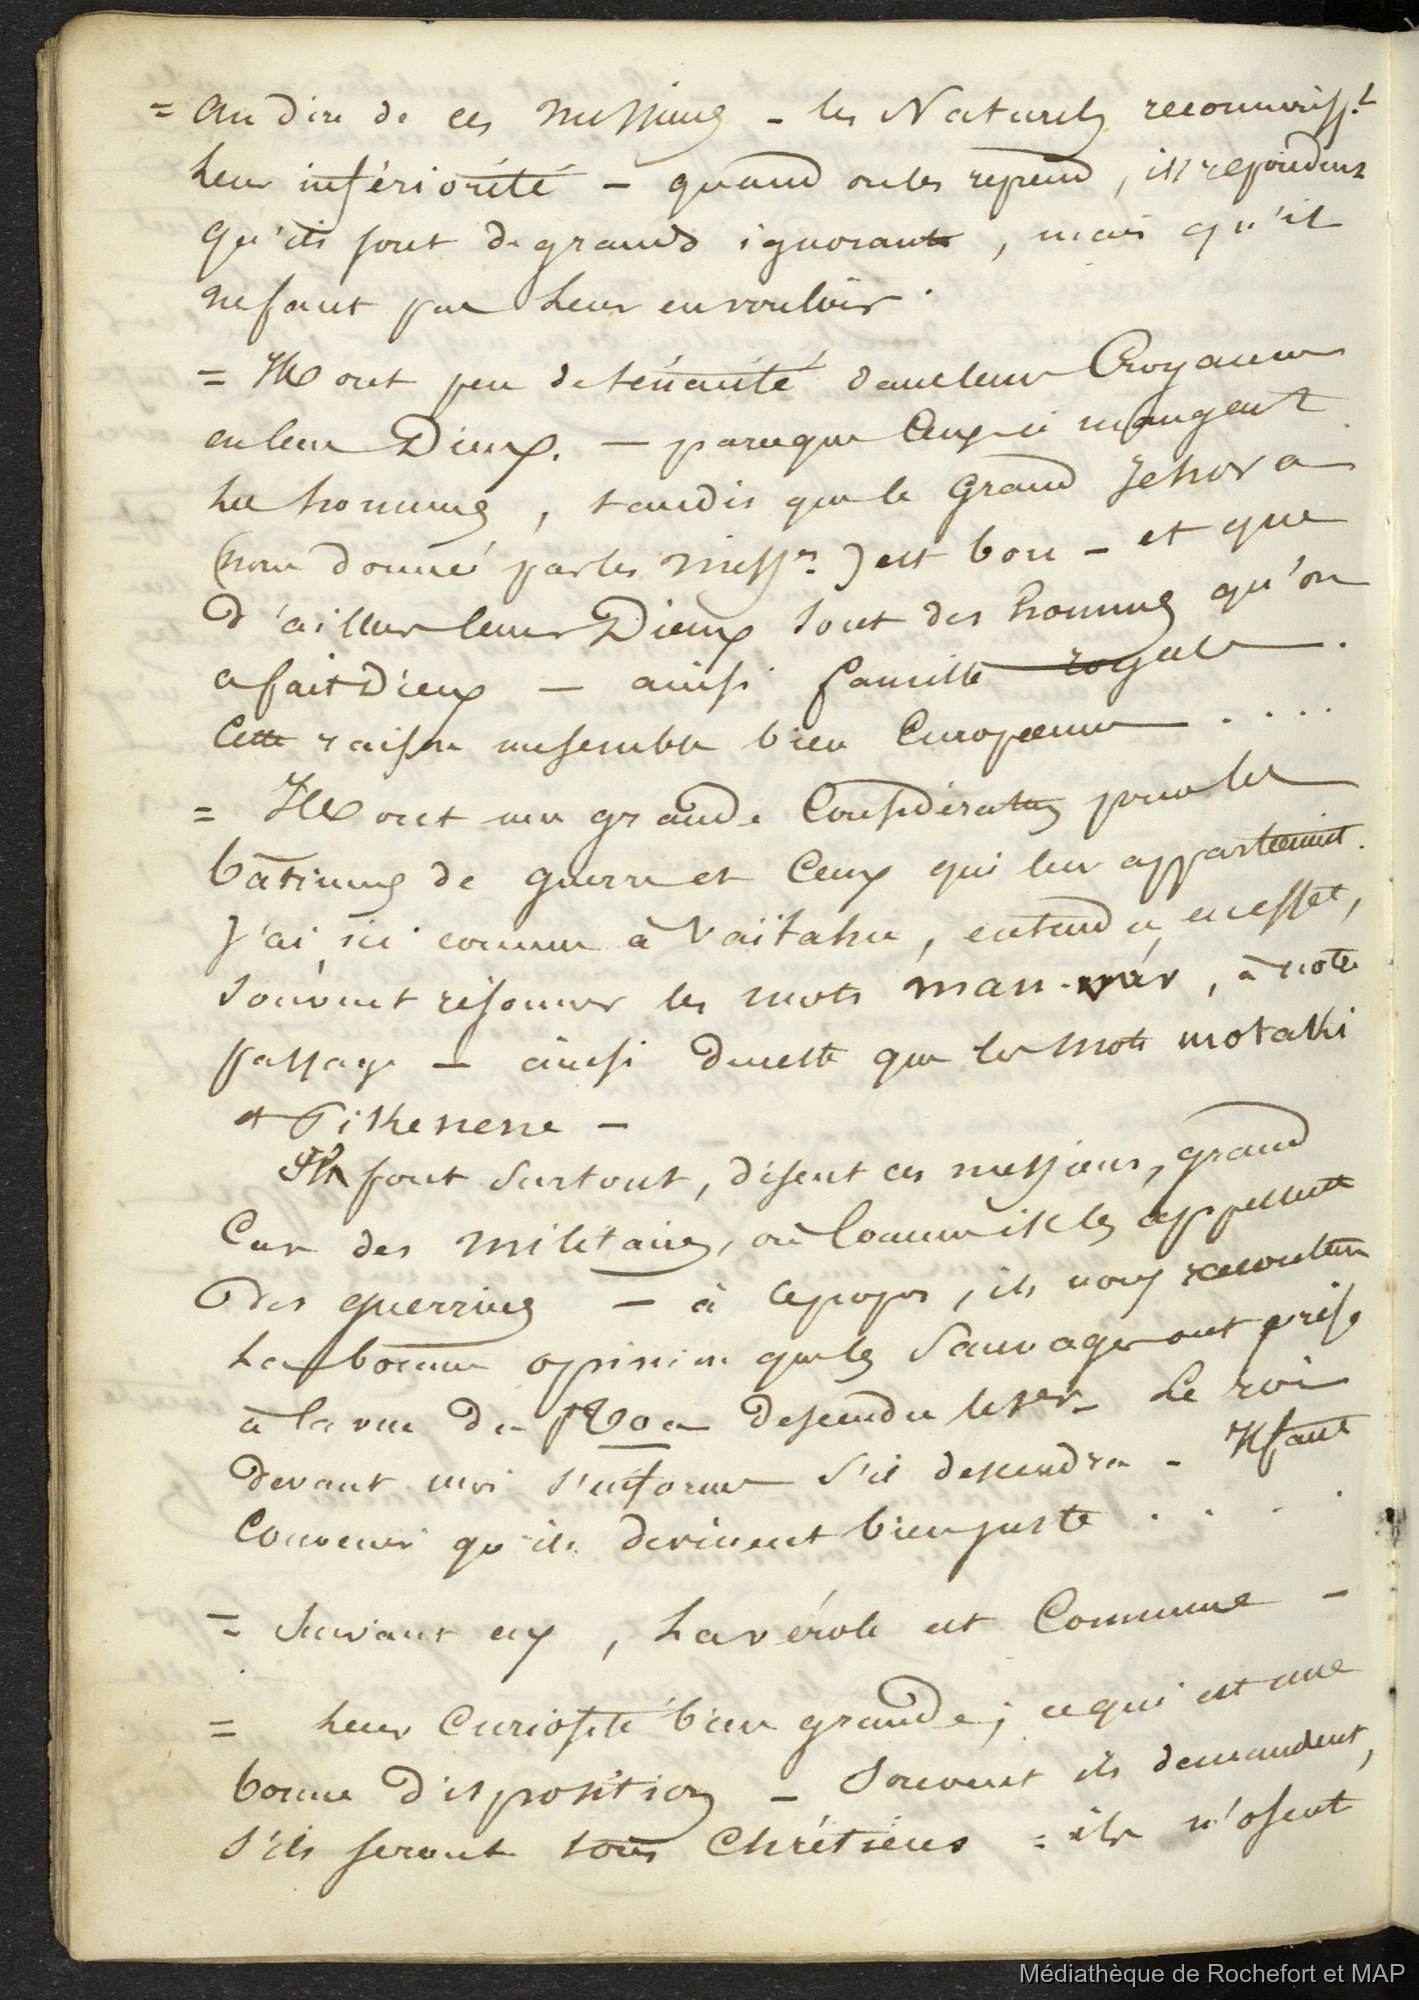 = Au dire de ces messieurs - les Naturels reconnaiss.t
leur infériorité - quand on les reprend, ils repondent
qu'ils sont de grands ignorants, mais qu'il
ne faut pas leur en vouloir.
= Ils ont peu de ténacité dans leur Croyance
en leur Dieux. - parceque Ceux-ci mangent
les hommes, tandis que le Grand Jehova
(nom donné par les miss.rs) est bon - et que
d'ailleurs leurs Dieux sont des hommes qu'on
a fait Dieux - ainsi famille royale.
Cette raison me semble bien Européenne ....
= Ils ont une grande Considération pour les
bâtimens de guerre et Ceux qui leur appartiennent.
J'ai, ici comme à Vaïtahu, entendu, en effet,
souvent résonner les mots man-wär, à notre
passage - ainsi du reste que les mots motaki
et Pikenene -
Ils font surtout, disent ces messieurs, grand
Cas des militaires, ou Comme ils les appellent
des guerriers - à ce propos, ils nous racontent
La bonne opinion que les Sauvages ont prise
à la vue de descendu Le roi
devant moi s'informe s'il descendra - Il faut
Convenir qu'ils devinent bien juste ....
= Suivant eux, La vérole est Commune -
= Leur Curiosité bien grande; ce qui est une
bonne Disposition - Souvent ils demandent,
s'ils seront tous Chrétiens = ils n'osent
Médiathèque de Rochefort et MAP